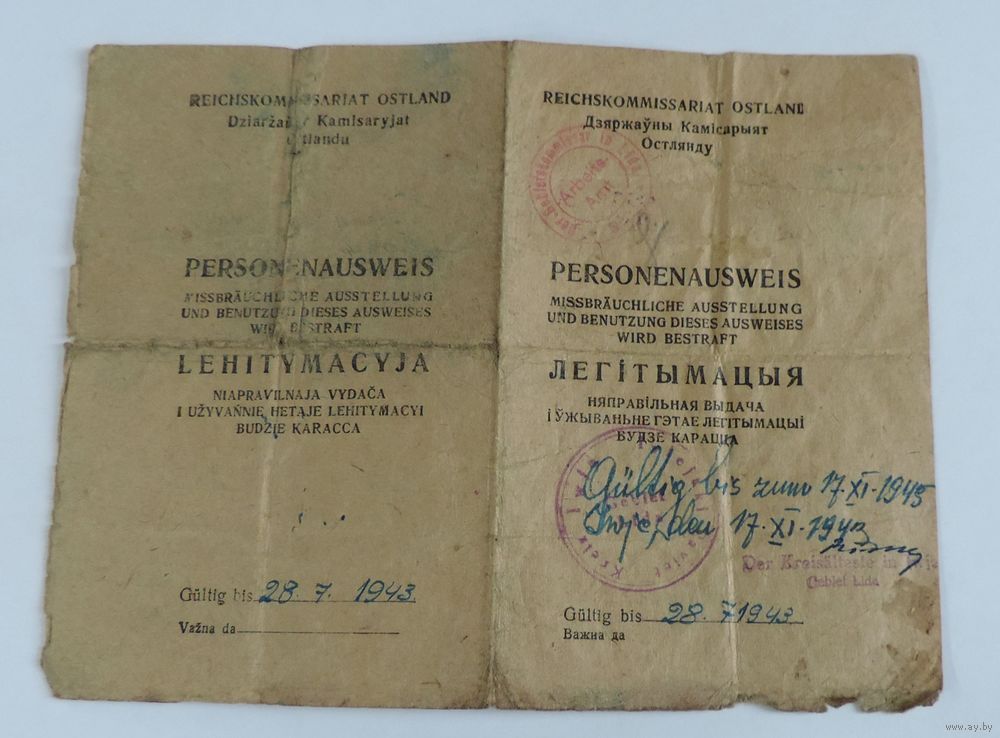 REICHSKOMMISSARIAT OSTLAND
Kamisaryjat
PERSONENAUSWEIS
MISSBRÄUCHLICHE AUSSTELLUNG
UND BENUTZUNG DIESES AUSWEISES
WIRD BESTRAFT
LEHITYMACYJA
NIAPRAVILNAJA VYDAČA
I UŽYVAŃNIE HETAJE LEHITYMACYI
BUDZIE KARACCA
Gültig bis 28. 7. 1943.
Važna da
REICHSKOMMISSARIAT OSTLAND
Дзяржаўны Камісарыят
Остлянду
Arbeits
Amt
PERSONENAUSWEIS
MISSBRÄUCHLICHE AUSSTELLUNG
UND BENUTZUNG DIESES AUSWEISES
WIRD BESTRAFT
ЛЕГІТЫМАЦЫЯ
НЯПРАВІЛЬНАЯ ВЫДАЧА
І ЎЖЫВАНЬНЕ ГЭТАЕ ЛЕГІТЫМАЦЫІ
БУДЗЕ КАРАЦЦА
Gültig bis zum 17. XI. 1945
Iwje, den 17. XI. 1943
Der Kreisälteste in
Gebiet Lida
Gültig bis 28. 7 1943.
Важна да
www.ay.by